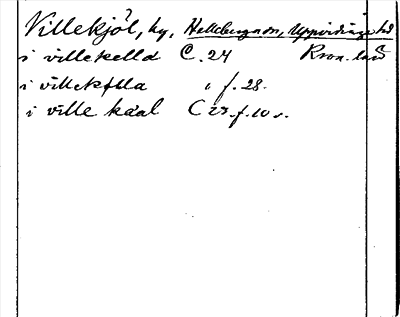 Villekjöl, by, Hälleberga sn, Uppvidinge hd
i villekelld C. 24 Kron. län
i villekilla " f. 28.
i ville kaal C 23. f. 10 v.